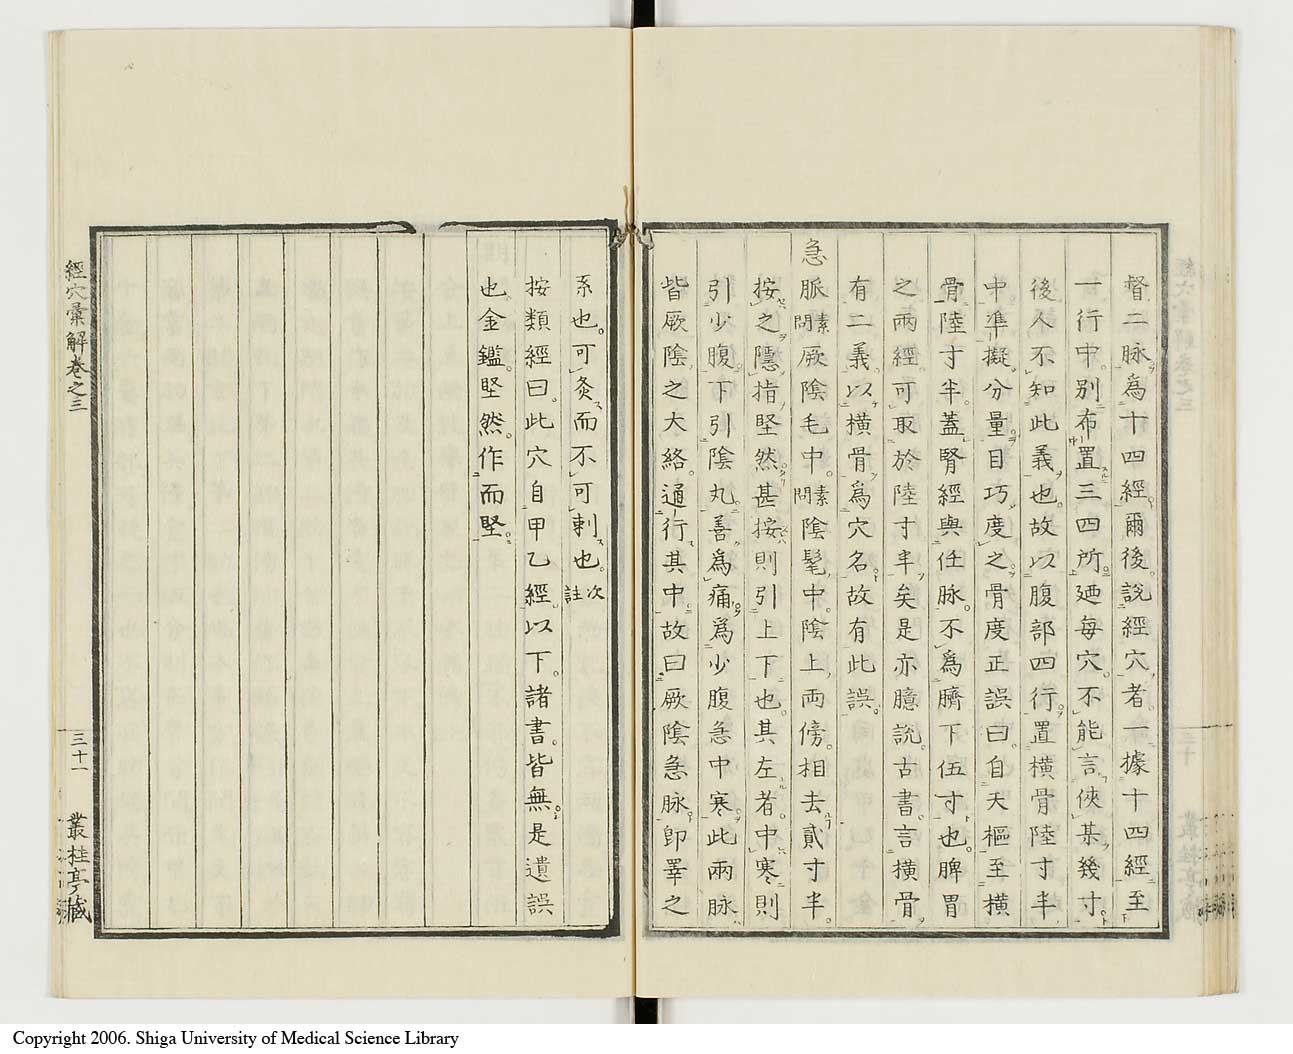 督二脉爲十四經爾後說經穴者一據十四經至
一行中別布置三四所廼每穴不能言俠某幾寸
後人不知此義也故以腹部四行置橫骨陸寸半
中凖擬分量目巧度之骨度正誤曰自天樞至橫
骨陸寸半蓋腎經與任脉不爲臍下伍寸也脾胃
之兩經可取於陸寸半矣是亦臆說古書言橫骨
有二義以橫骨爲穴名故有此誤
急脈素問厥陰毛中素問陰髦中陰上兩傍相去貳寸半
按之隱指堅然甚按則引上下也其左者中寒則
引少腹下引陰丸善爲痛爲少腹急中寒此兩脉
皆厥陰之大絡通行其中故曰厥陰急脉卽睪之
系也可灸而不可刺也次註
按類經曰此穴自甲乙經以下諸書皆無是遺誤
也金鑑堅然作而堅
經穴彙解卷之三
三十一
叢桂亭藏
Copyright 2006. Shiga University of Medical Science Library